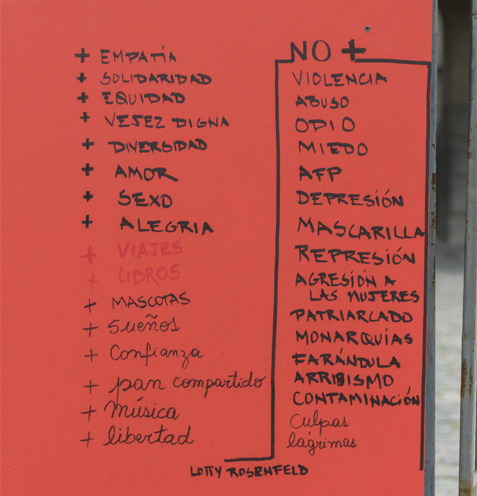 + EMPATÍA
+ SOLIDARIDAD
+ EQUIDAD
+ VEJEZ DIGNA
+ DIVERSIDAD
+ AMOR
+ SEXO
+ ALEGRIA
+ VIAJES
+ LIBROS
+ MASCOTAS
+ Sueños
+ Confianza
+ pan compartido
+ Música
+ libertad
NO +
VIOLENCIA
ABUSO
ODIO
MIEDO
AFP
DEPRESIÓN
MASCARILLA
REPRESIÓN
AGRESIÓN A
LAS MUJERES
PATRIARCADO
MONARQUÍAS
FARÁNDULA
ARRIBISMO
CONTAMINACIÓN
Culpas
lágrimas
LOTTY ROSENFELD